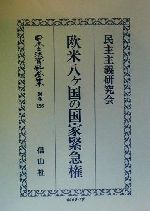 民主主義研究会
欧米八ヶ国の国家緊急権
日本立法資料全集
別巻
信山社